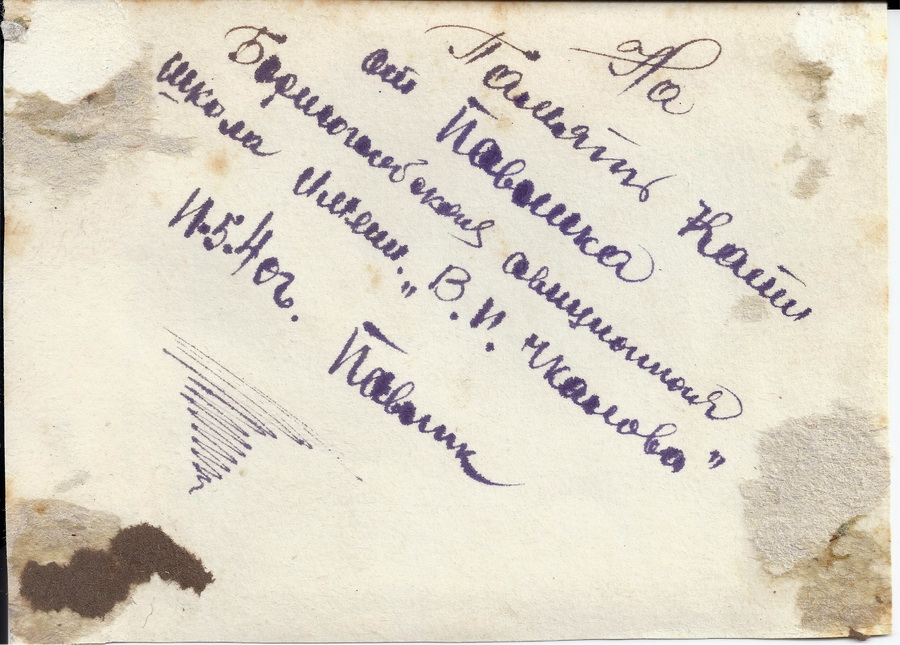 На
Память Кати
от Павлика
Борисоглебская авиционная
школа имени. „В. П. Чкалова"
11.5.40г. Павлик